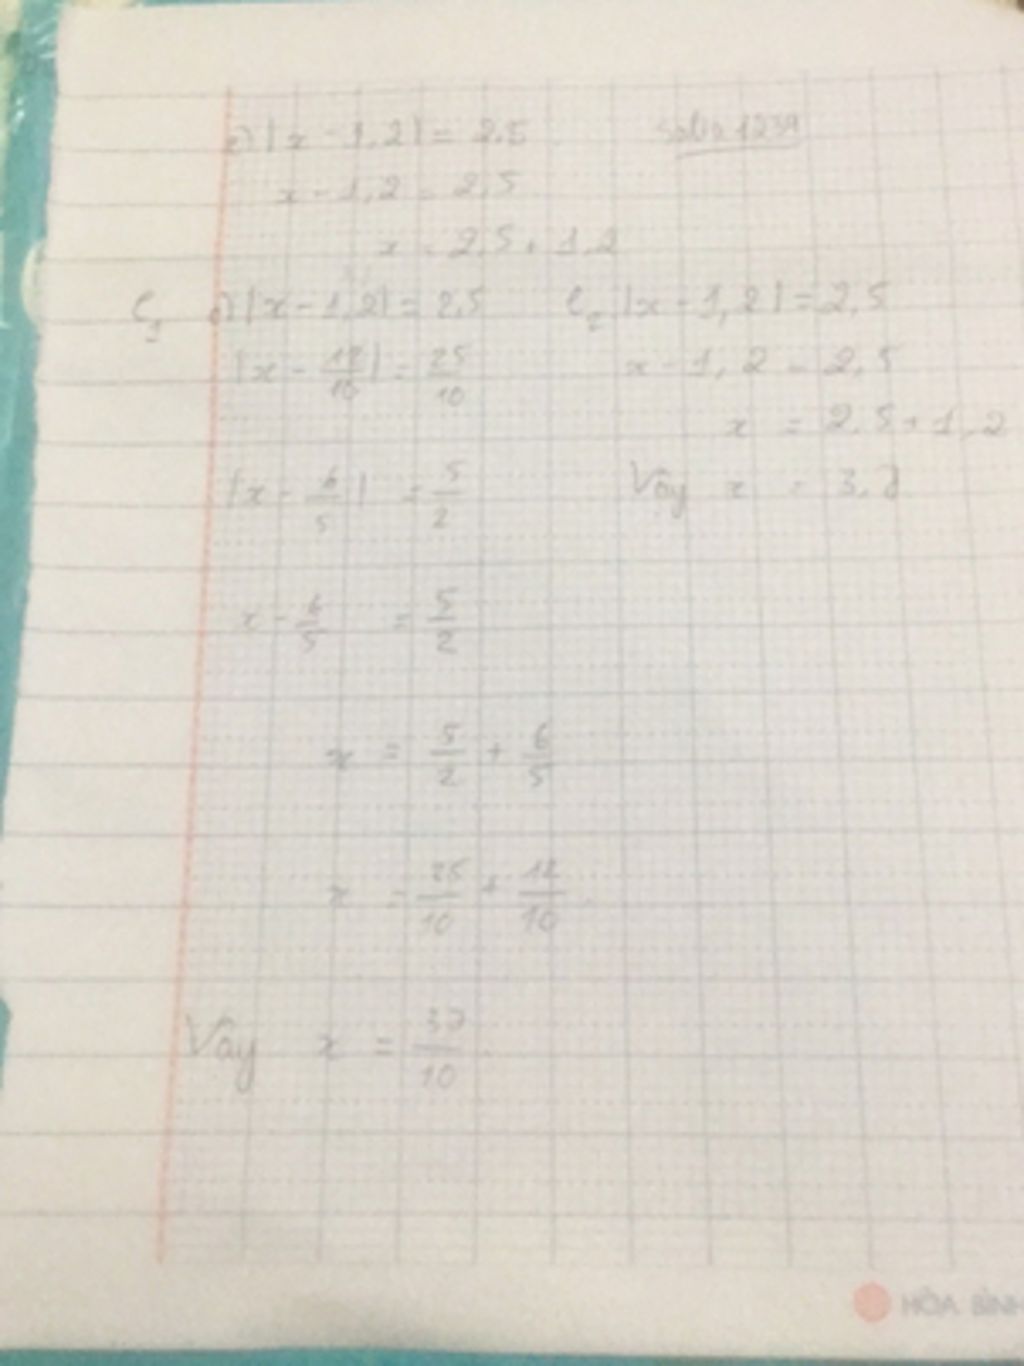 a) |x - 1,2| = 2,5
x - 1,2 = 2,5
x = 2,5 + 1,2
C1 a) |x - 1,2| = 2,5
|x - 12/10| = 25/10
|x - 6/5| = 5/2
x - 6/5 = 5/2
x = 5/2 + 6/5
x = 25/10 + 12/10
Vậy x = 37/10
C2 |x - 1,2| = 2,5
x - 1,2 = 2,5
x = 2,5 + 1,2
Vậy x = 3,7
HÒA BÌNH